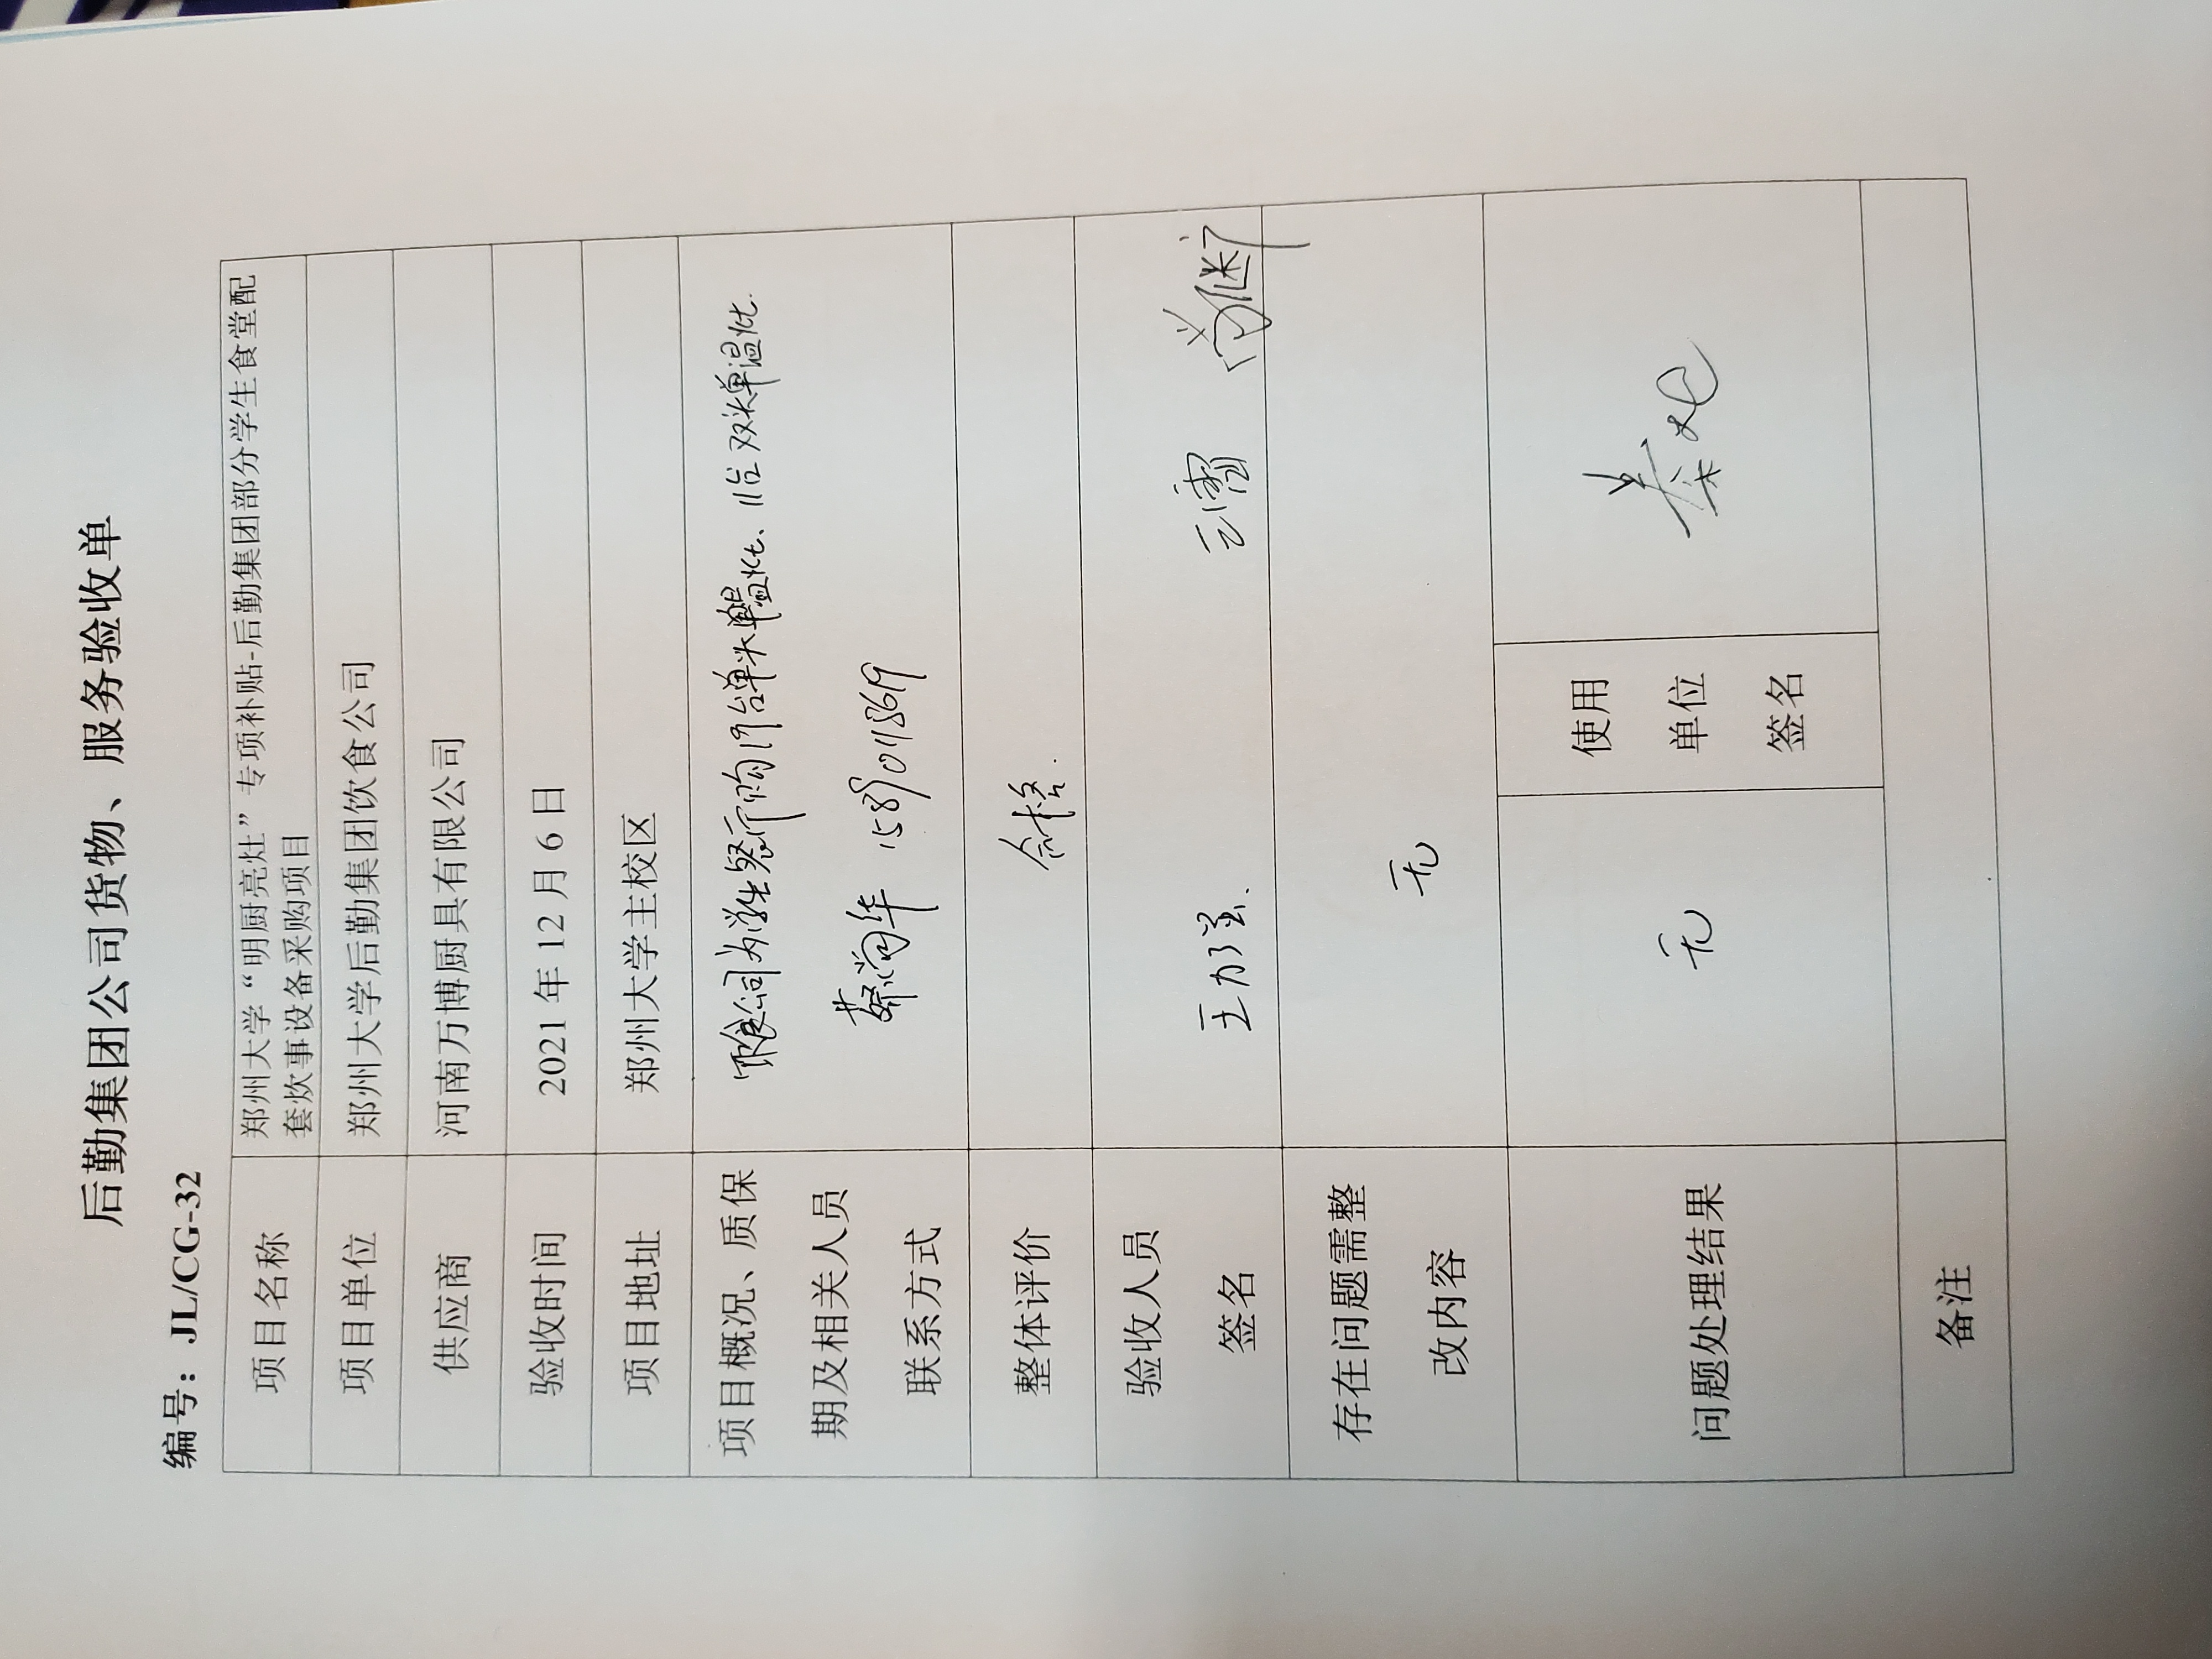 后勤集团公司货物、服务验收单
编号：JL/CG-32
项目名称
郑州大学“明厨亮灶”专项补贴-后勤集团部分学生食堂配
套炊事设备采购项目
项目单位
郑州大学后勤集团饮食公司
供应商
河南万博厨具有限公司
验收时间
2021 年 12 月 6 日
项目地址
郑州大学主校区
项目概况、质保
期及相关人员
联系方式
饮食公司为学生餐厅购19台单头单温灶、11台双头单温灶.
蔡尚华
整体评价
合格.
验收人员
签名
存在问题需整
改内容
无
问题处理结果
无
使用
单位
签名
备注